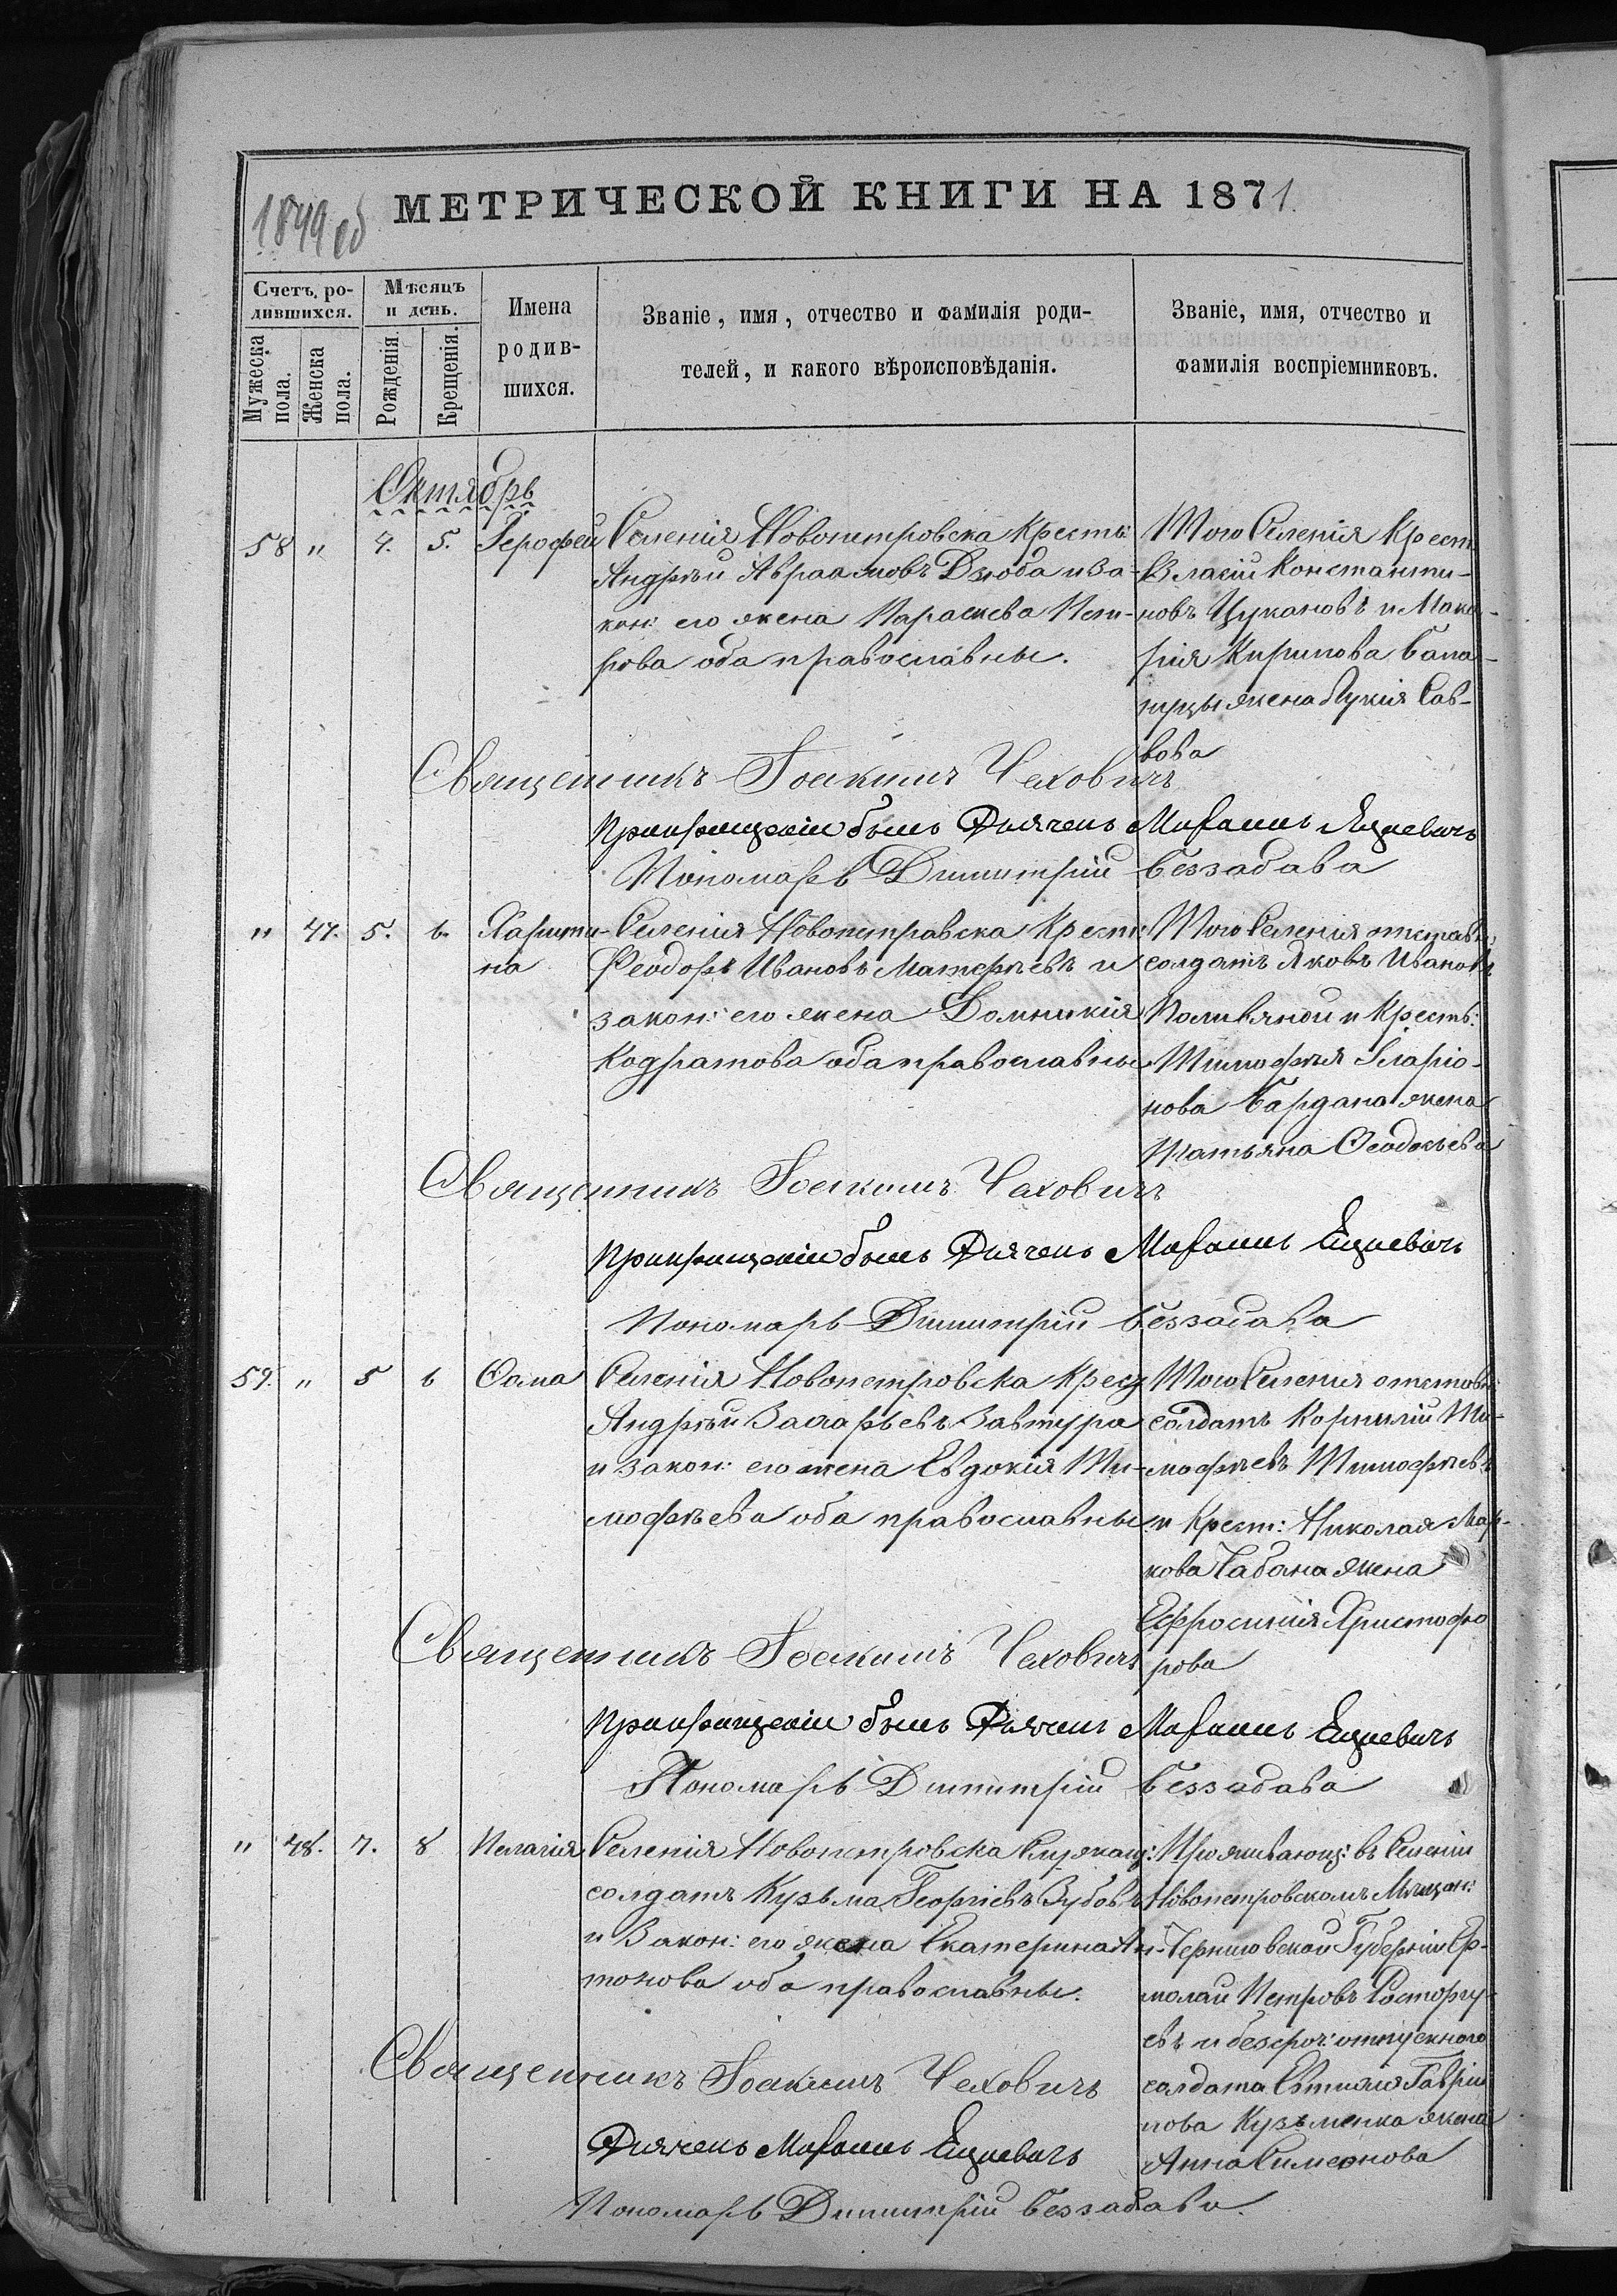 1849 об
МЕТРИЧЕСКОЙ КНИГИ НА 1871.
Счетъ ро-
дившихся.
Мѣсяцъ
и день.
Мужеска
пола.
Женска
пола.
Рожденія.
Крещенія.
Имена
родив-
шихся.
Званіе, имя, отчество и фамилія роди-
телей, и какого вѣроисповѣданія.
Званіе, имя, отчество и
фамилія воспріемниковъ.
Октябрь
58 " 4. 5. Іерофей
Селенія Новопетровска Крестъ:
Андрѣй Авраамовъ Дзюба и за-
кон: его жена Параскева Пет-
рова оба православные.
Того Селенія Крест
Власій Константи-
новъ Цукановъ и Мака-
рія Кирилова
жена Лукія Сав-
вова
Священникъ Іоакимъ Чаховичъ
При крещеніи былъ Дьячекъ
Пономарь Димитрій Беззабава
" 47. 5. 6. Харити-
на
Селенія Новопетровска Крест:
Феодоръ Ивановъ Матфѣевъ и
закон: его жена Домникія
Кодратова оба православные
Того Селенія отставн:
солдатъ Яковъ Ивановъ
Поливяной и Крестъ:
Тимофѣя Іларіо-
нова Бардана жена
Татьяна Феодосьева
Священникъ Іоакимъ Чаховичъ
При крещеніи былъ Дьячекъ
Пономарь Димитрій Беззабава
59. " 5 6 Фома
Селенія Новопетровска Крест
Андрѣй Захарьевъ Завтура
и закон: его жена Евдокія Ти-
мофѣева оба православные
Того Селенія отставн:
солдатъ Корнилій Ти-
мофѣевъ Тимофѣевъ
и Крест: Николая Мар-
кова Чабана жена
Ефросинія Христофо
рова
Священникъ Іоакимъ Чаховичъ
При крещеніи былъ Дьячекъ
Пономарь Димитрій Беззабава
" 48. 7. 8 Пелагія
Селенія Новопетровска Служащ:
солдатъ Кузьма Георгіевъ Зубовъ
и Закон: его жена Екатерина Ан-
тонова оба православные.
Проживающ: въ Селеніи
Новопетровскомъ Мѣщан:
Черниговской Губерніи Ер-
молай Петровъ Растаргу-
евъ и безсроч: отпускного
солдата Евтихія Гаврии
лова Кузьменка жена
Анна Симеонова
Священникъ Іоакимъ Чаховичъ
Дьячекъ
Пономарь Димитрій Беззабава